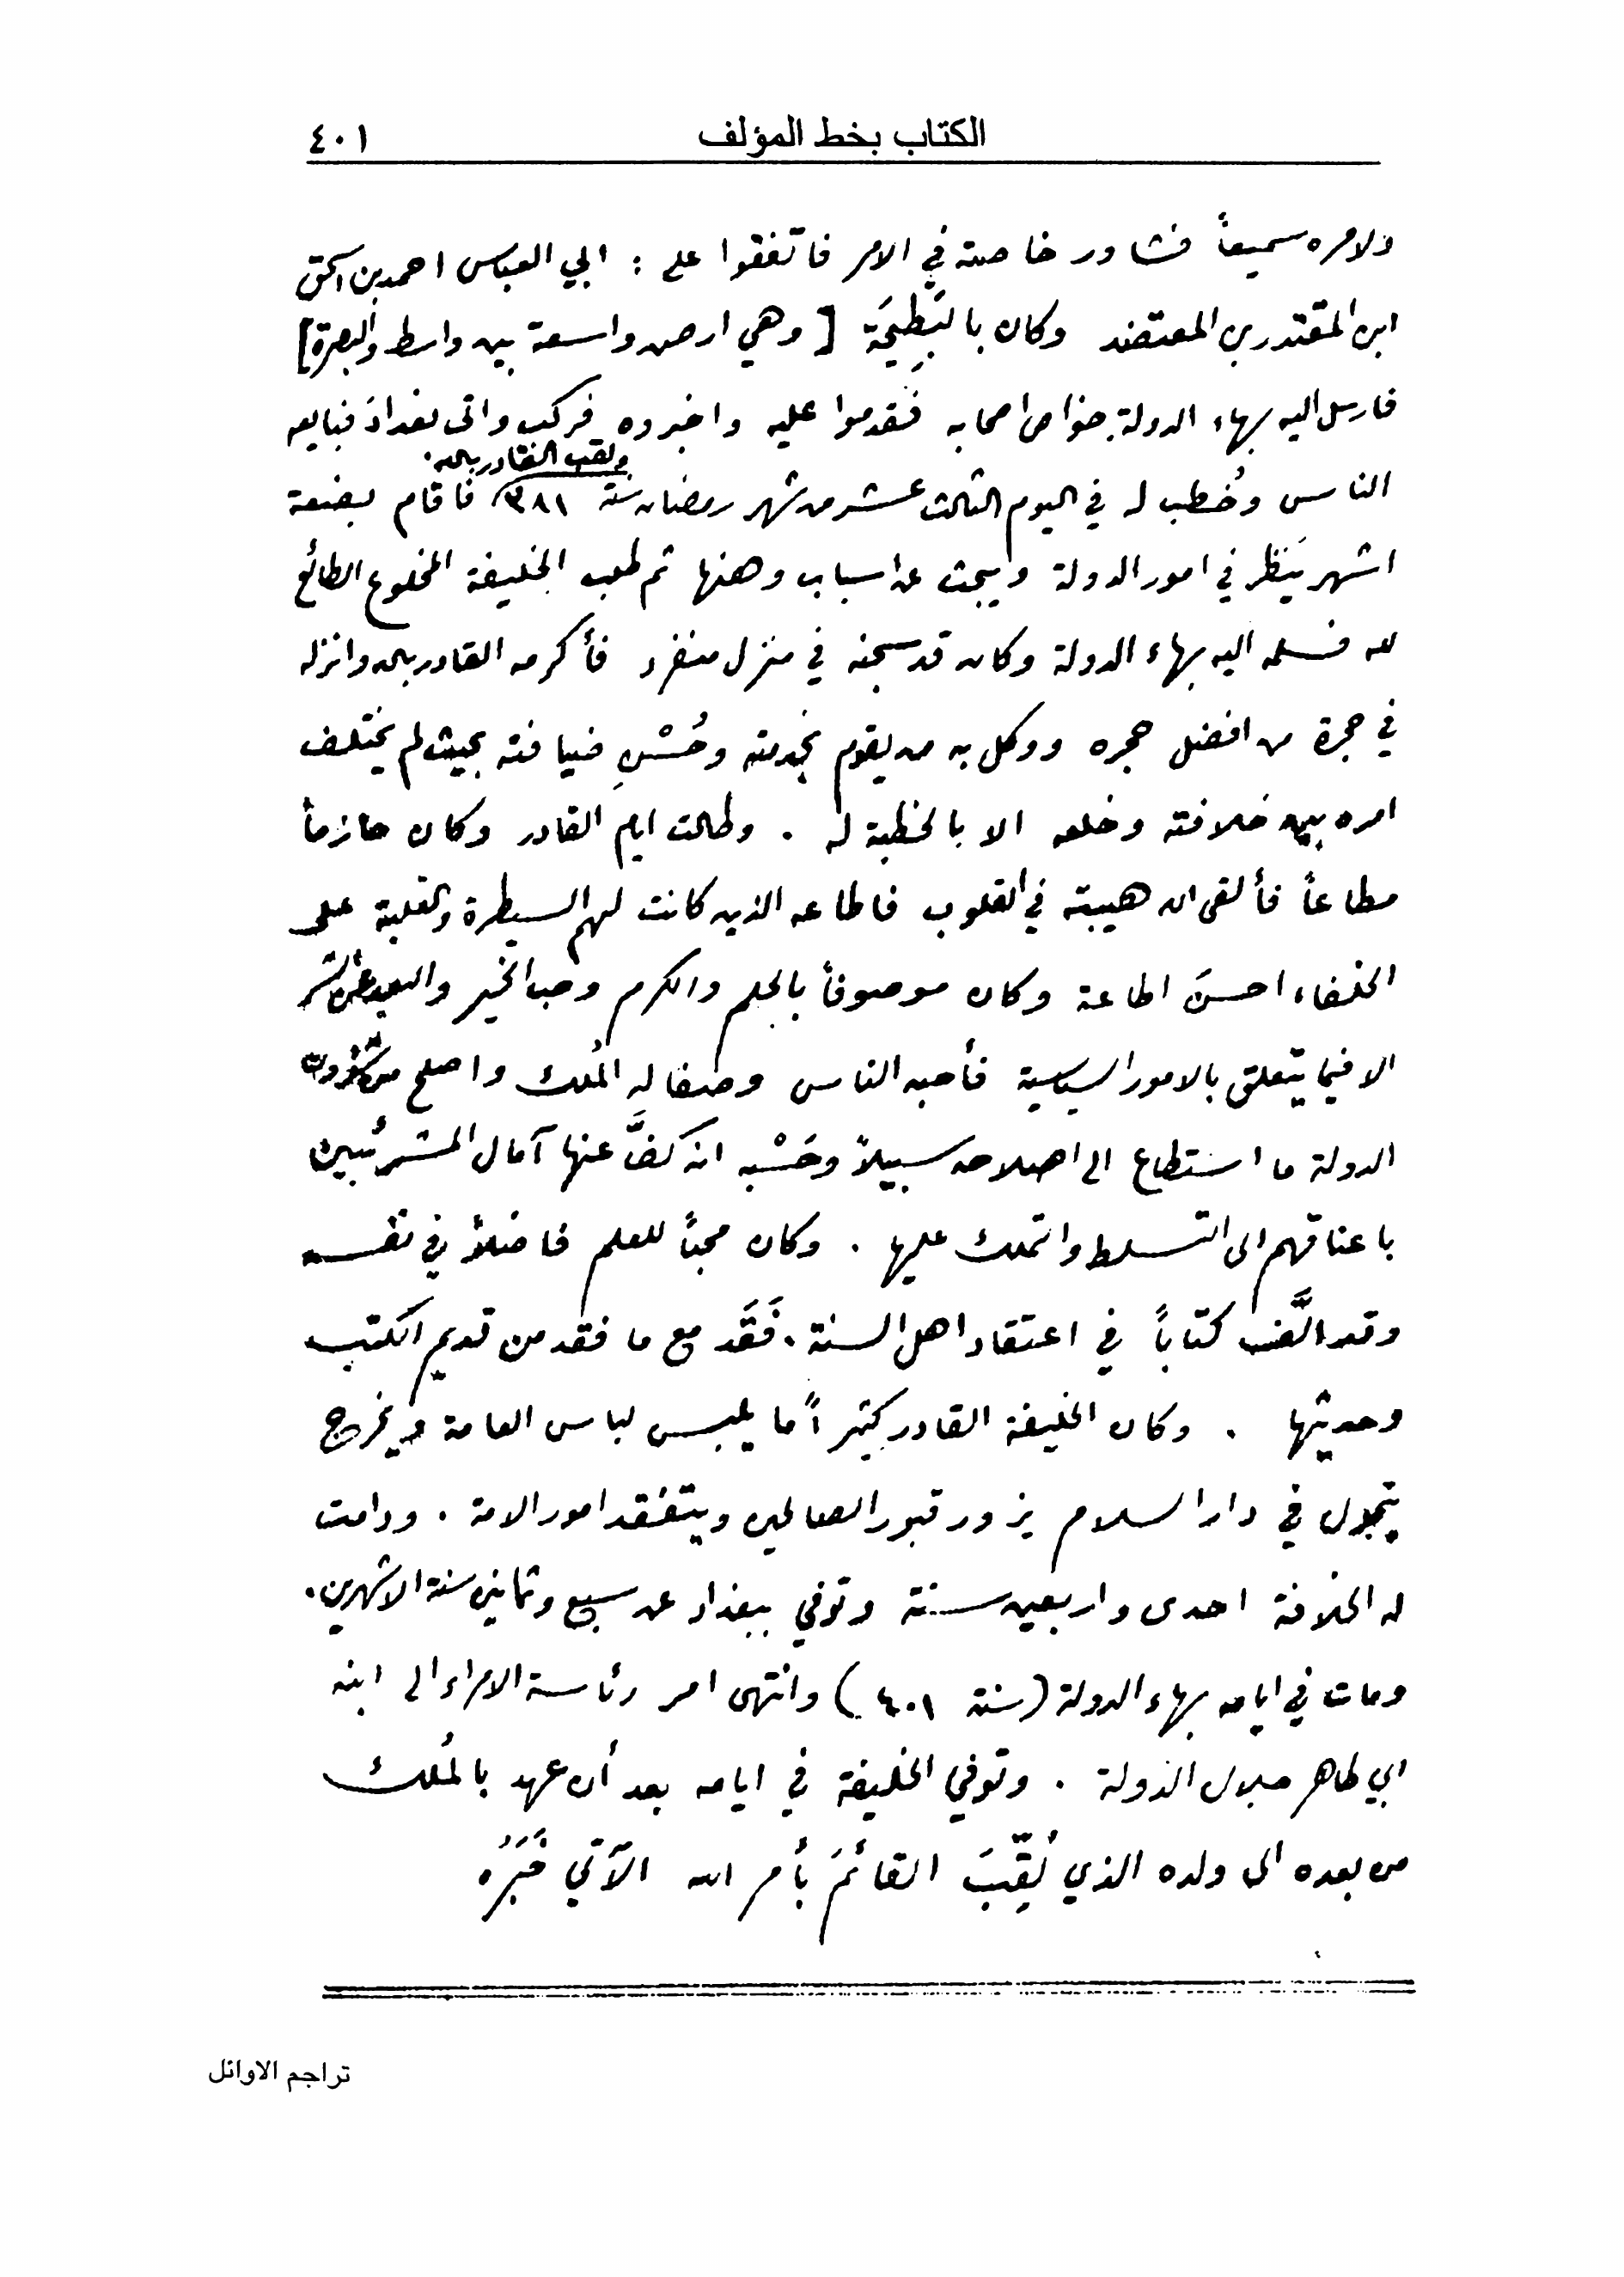 الكتاب بخط المؤلف ٤٠١
ولامره سميعاً فشاور خاصته في الامر فاتفقوا على : ابي العباس احمد بن اسحق
ابن المقتدر بن المعتضد وكان بالبَطِيحَة [ وهي ارض واسعة بين واسط والبصرة ]
فارسل اليه بهاء الدولة خواص اصحابه فقدموا عليه واخبروه فركب واتى بغدادَ فبايعه
ولقب القادر بالله .
الناس وخُطب له في اليوم الثالث عشر من شهر رمضان سنة ٣٨١ فاقام بضعة
اشهر يَنظر في امور الدولة ويبحث عن اسباب وهنها ثم طلب الخليفة المخلوع الطائع
لله فسلمه اليه بهاء الدولة وكان قد سجنه في منزل منفرد فأكرمه القادر بالله وانزله
في حجرة من افضل حجره ووكل به من يقوم بخدمته وحُسْنِ ضيافته بحيث لم يختلف
امره بين خلافته وخلعه الا بالخطبة له . وطالت ايام القادر وكان حازماً
مطاعاً فألقى الله هيبته في القلوب فاطاعه الذين كانت لهم السيطرة والغلبة على
الخلفاء احسنَ اطاعة وكان موصوفاً بالحلم والكرم وحب الخير والبعد عن الشر
الا فيما يتعلق بالامور السياسية فأحبه الناس وصفا له المُلك واصلح من شؤون
الدولة ما استطاع الى اصلاحه سبيلاً وحَسْبه انه كفَّ عنها آمال المشرئبين
باعناقهم الى التسلط والتملك عليها . وكان محباً للعلم فاضلاً في نفسه
وقد الَّف كتاباً في اعتقاد اهل السنة . فَقَد مع ما فقد من قديم الكتب
وحديثها . وكان الخليفة القادر كثيراً ما يلبس لباس العامة ويخرج
يتجول في دار السلام يزور قبور الصالحين ويتفقد امور الامة . ودامت
له الخلافة احدى واربعين سنة وتوفي ببغداد عن سبع وثمانين سنة الا شهرين .
ومات في ايامه بهاء الدولة ( سنة ٤٠١ ) وانتهى امر رئاسة الامراء الى ابنه
ابي طاهر جلال الدولة . وتوفي الخليفة في ايامه بعد أن عهد بالمُلك
من بعده الى ولده الذي لُقِّبَ القائمَ بأمر الله الآتي خَبَرُه
تراجم الاوائل